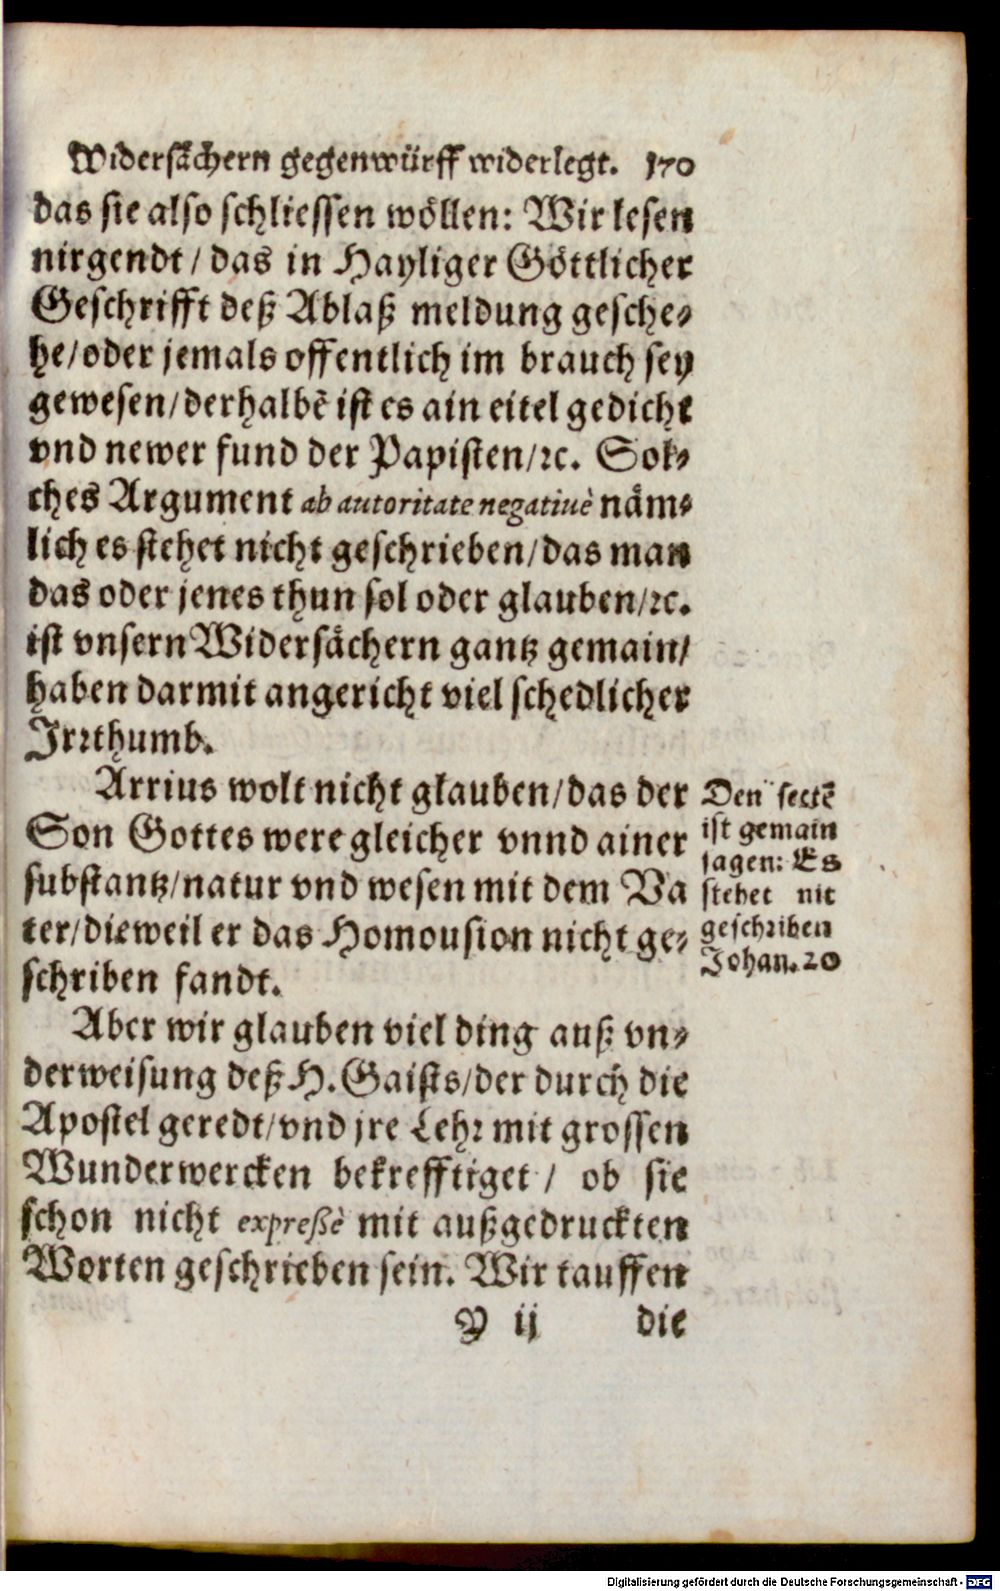 Widersächern gegenwürff widerlegt. 170
das sie also schliessen wöllen: Wir lesen
nirgendt / das in Hayliger Göttlicher
Geschrifft deß Ablaß meldung gesche⸗
he/oder jemals offentlich im brauch sey
gewesen/derhalbē ist es ain eitel gedicht
vnd newer fund der Papisten/ꝛc. Sol⸗
ches Argument ab autoritate negatiuè näm⸗
lich es stehet nicht geschrieben/das man
das oder jenes thun sol oder glauben/ꝛc.
ist vnsern Widersächern gantz gemain/
haben darmit angericht viel schedlicher
Jrꝛthumb.
Arrius wolt nicht glauben/das der
Son Gottes were gleicher vnnd ainer
substantz/natur vnd wesen mit dem Va
ter/dieweil er das Homousion nicht ge⸗
schriben fandt.
Den sectē
ist gemain
sagen: Es
stehet nit
geschꝛiben
Johan. 20
Aber wir glauben viel ding auß vn⸗
derweisung deß H. Gaists/der durch die
Apostel geredt/vnd jre Lehꝛ mit grossen
Wunderwercken bekrefftiget / ob sie
schon nicht expreßè mit außgedruckten
Worten geschrieben sein. Wir tauffen
Y ij die
Digitalisierung gefördert durch die Deutsche Forschungsgemeinschaft - DFG